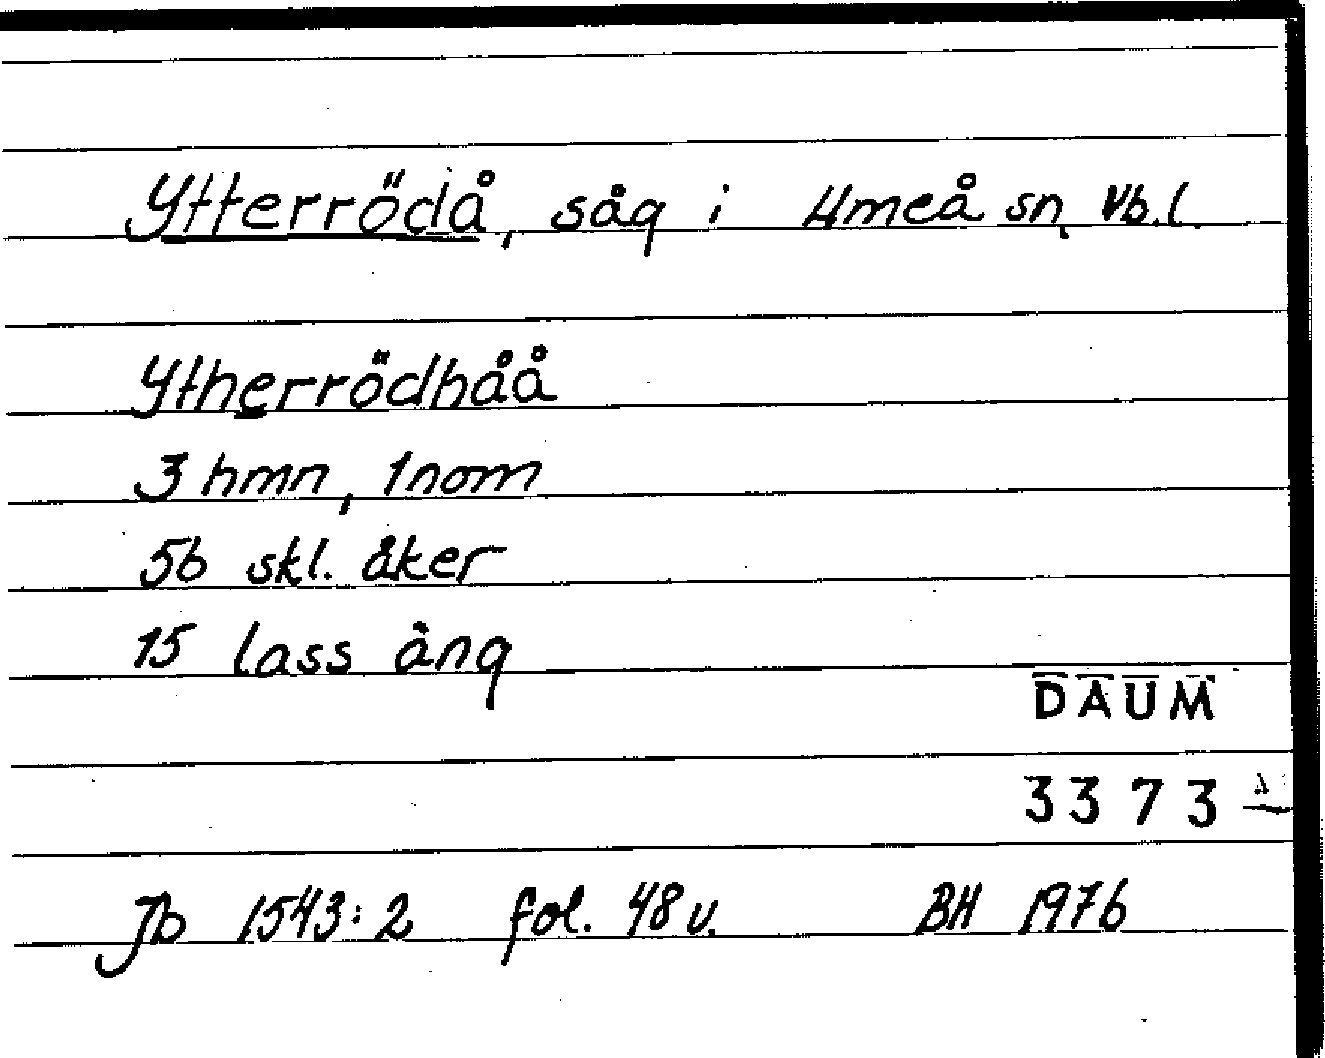 Ytterrödå, såg i Umeå sn, Vb.l.
Ytherrödhåå
3 hmn, 1 nom
56 skl. åker
15 lass äng
DAUM
3373
Jb 1543:2 fol. 48 v. BH 1976